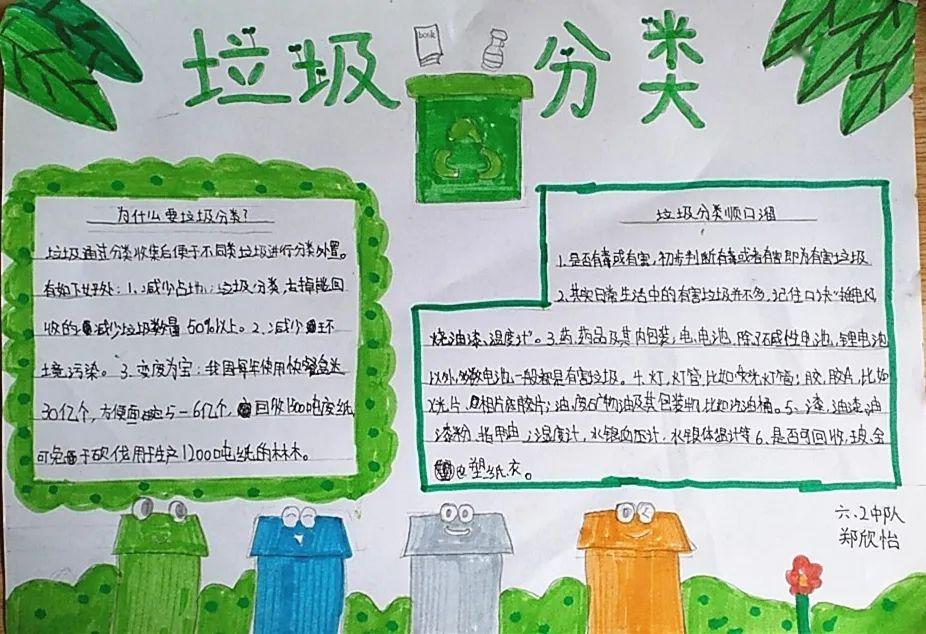 垃圾分类
book
为什么要垃圾分类?
垃圾通过分类收集后便于不同类垃圾进行分类处置。
有如下好处:1、减少占地:垃圾分类,去掉能回
收的减少垃圾数量60%以上。2、减少环
境污染。3、变废为宝:我国每年使用快餐盒达
30亿个,方便面碗5—6亿个,回收1500吨废纸
可免于砍伐用于生产1200吨纸的林木。
垃圾分类顺口溜
1.是否有毒或有害,初步判断有毒或者有害即为有害垃圾
2.其实日常生活中的有害垃圾并不多,记住口诀"
油漆、温度计"。3.药,药品及其内包装;电,电池,除了碱性电池,锂电池
以外,多数电池一般都是有害垃圾。4.灯,灯管,比如荧光灯管;胶,胶片,比如
X光片、相片底胶片;油,废矿物油及其包装物,比如汽油桶。5、漆,油漆,油
漆粉,指甲油,温度计,水银血压计,水银体温计等6.是否可回收,玻、金
塑纸衣。
六.2中队
郑欣怡